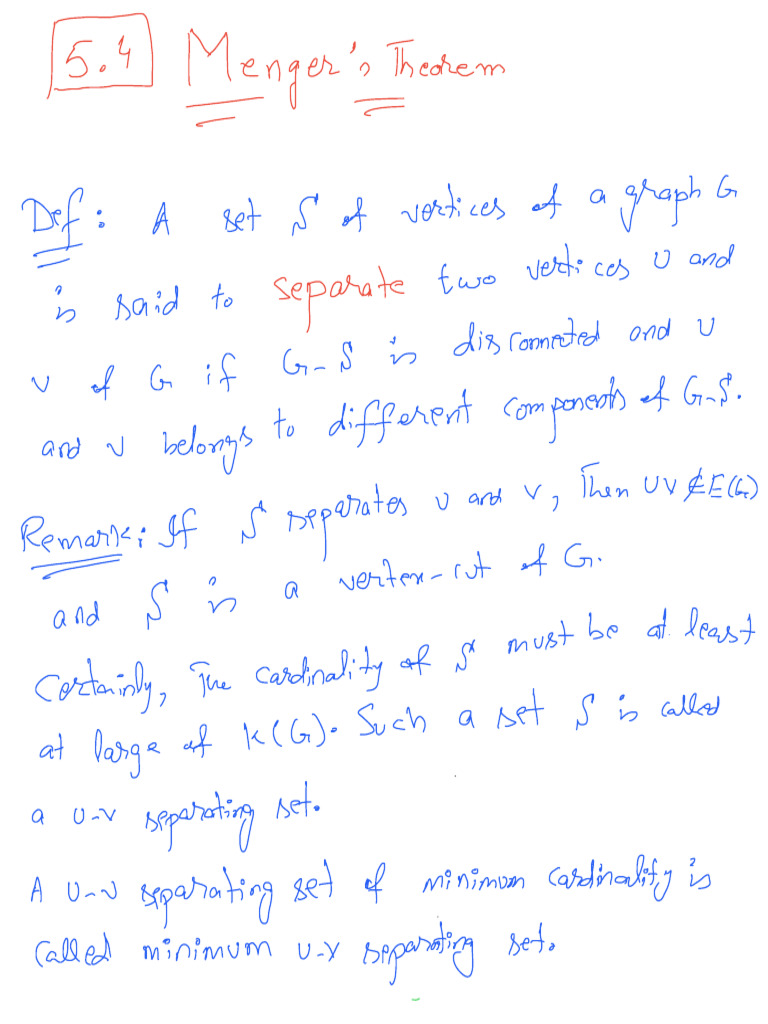 5.4 Menger's Theorem
Def: A set S of vertices of a graph G
is said to separate two vertices u and
v of G if G-S is disconnected and u
and v belongs to different components of G-S.
Remark: If S separates u and v, Then uv ∉ E(G)
and S is a vertex-cut of G.
Certainly, The cardinality of S must be at least
at large of k(G). Such a set S is called
a u-v separating set.
A u-v separating set of minimum cardinality is
called minimum u-v separating set.